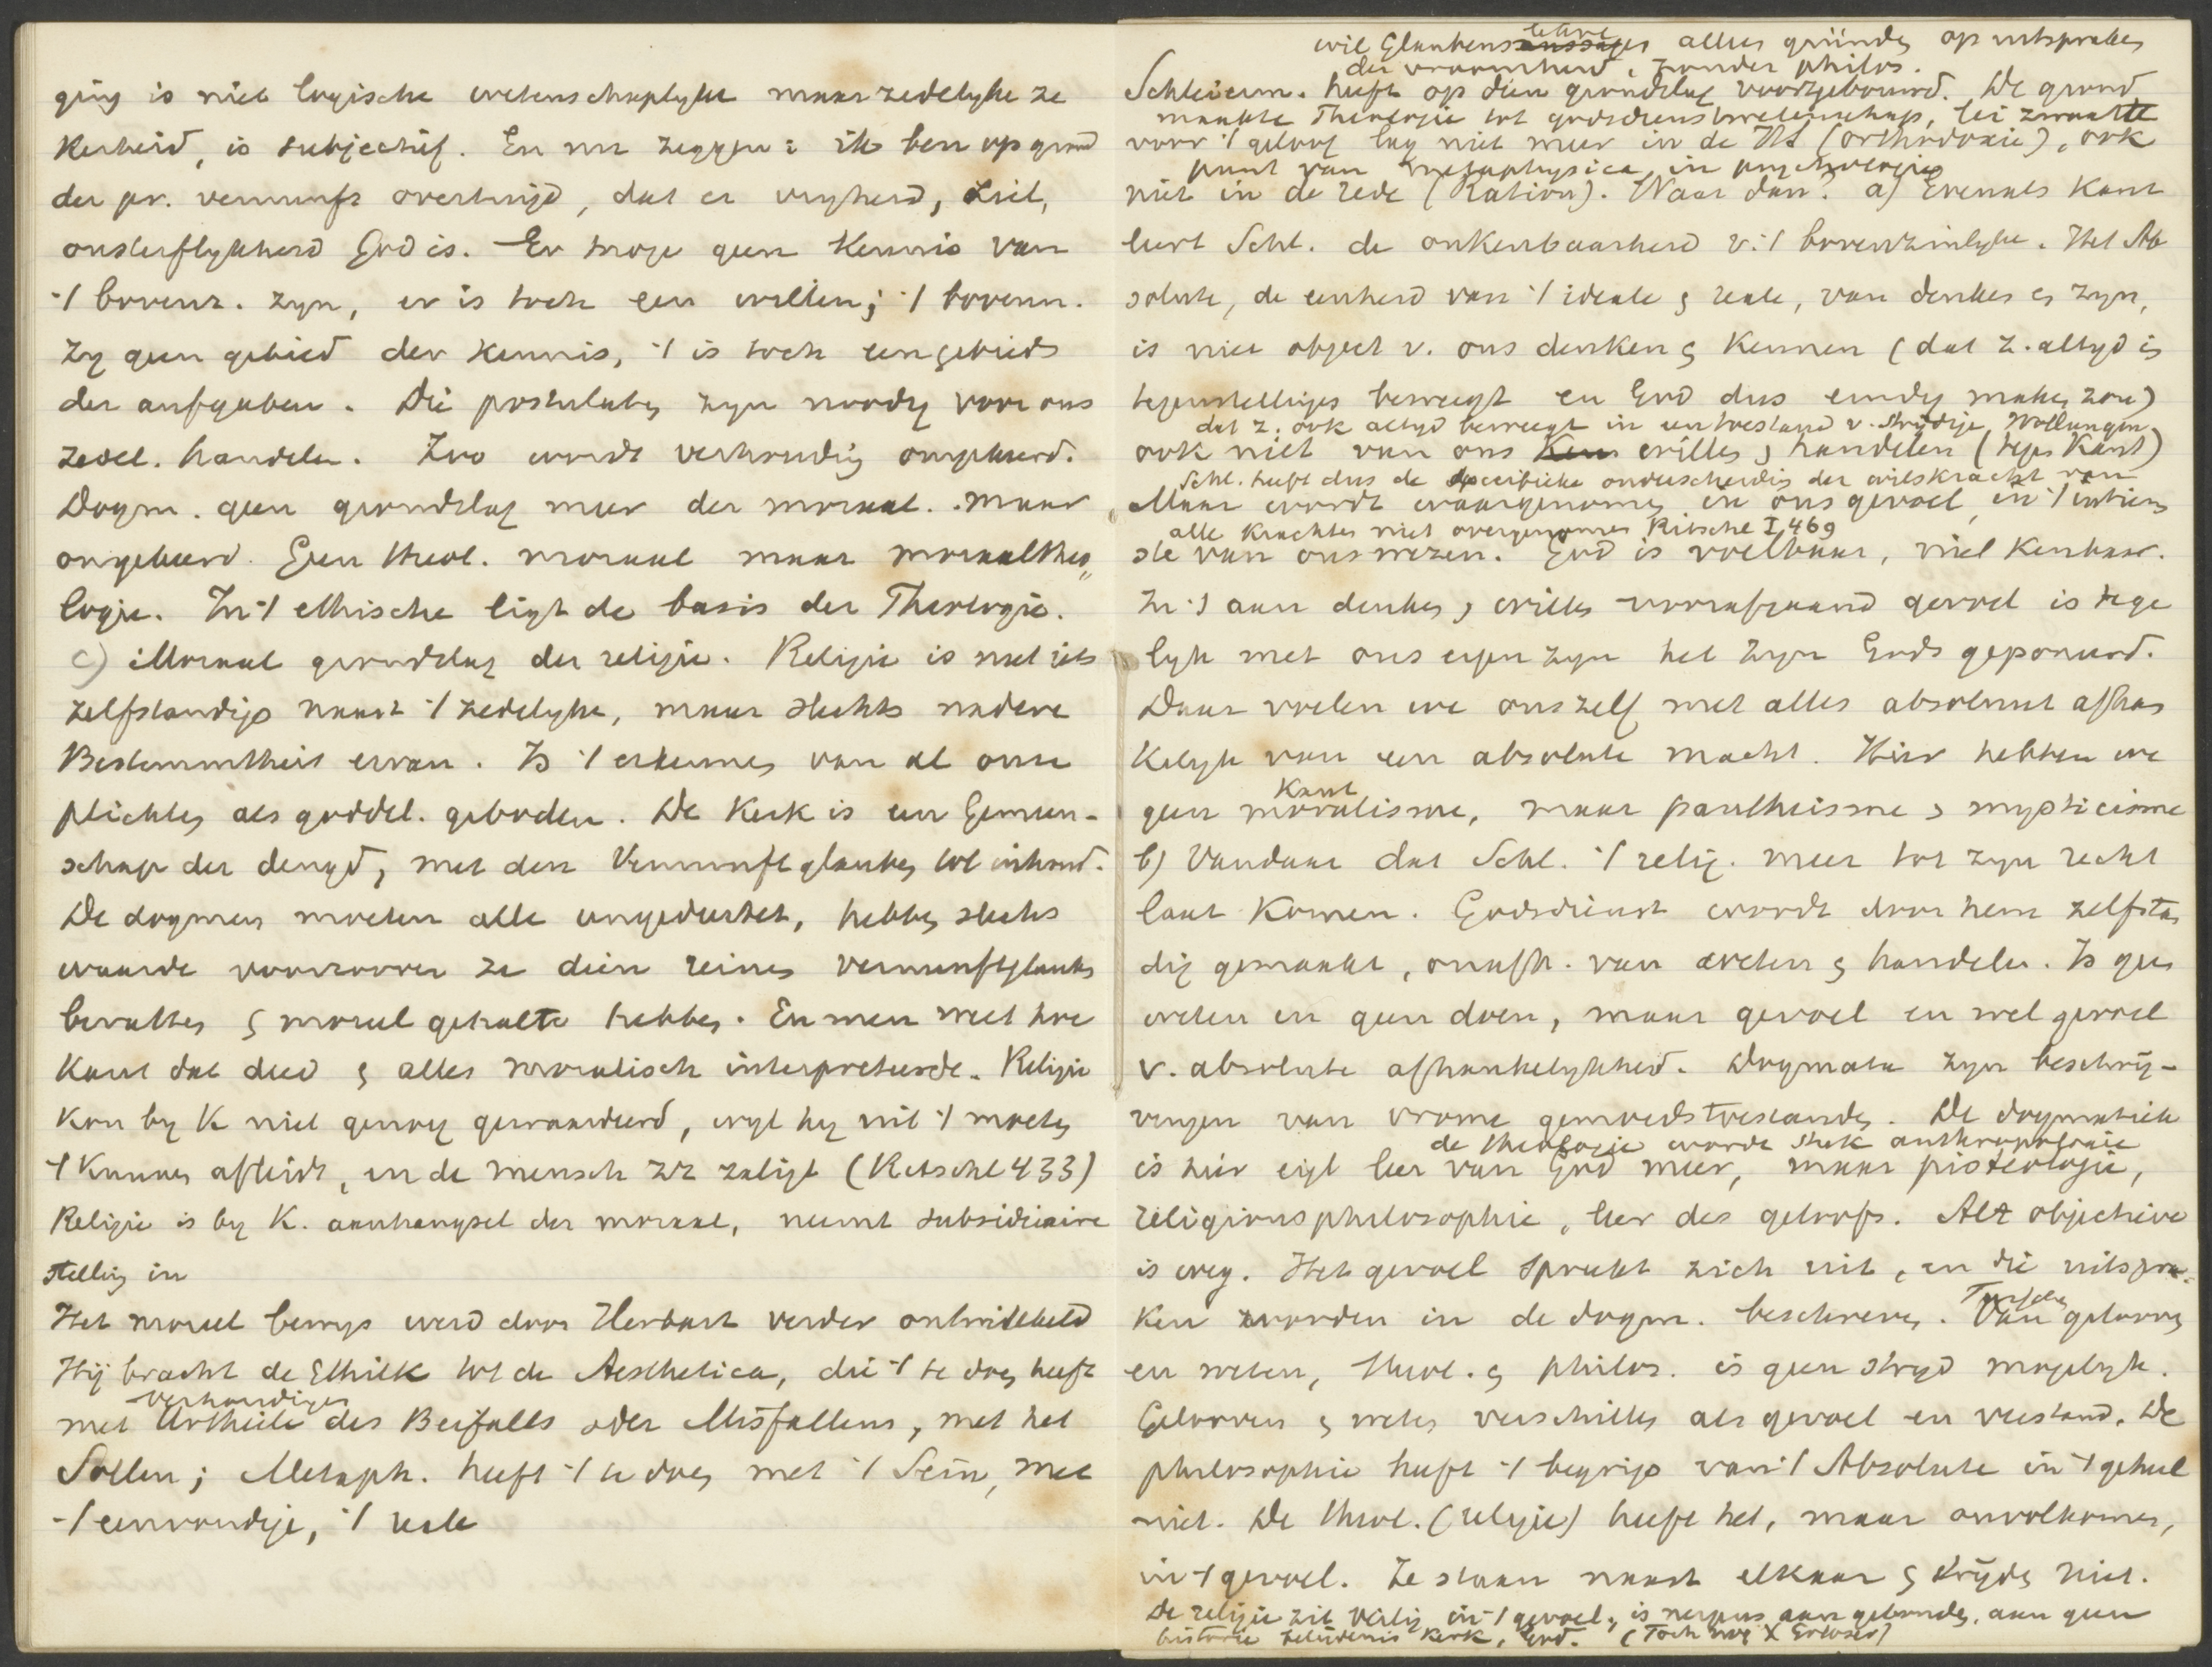 ging is niet logische wetenschaplyke maar zedelyke ze
kerheid, is subjectief. En nu zeggen: ik ben op grond
der pr. vernunft overtuigd, dat er vryheid, ziel,
onsterflykheid God is. Er moge geen kennis van
't bovenz. zyn, er is toch een willen; 't bovenn.
zy geen gebied der kennis, 't is toch een gebied
der aufgaben. Die postulaten zyn noodig voor ons
zedel. handelen. Zoo wordt verhouding omgekeerd.
Dogm. geen grondslag meer der moraal. maar
omgekeerd. Geen theol. moraal maar moraaltheo„
logie. In 't ethische ligt de basis der Theologie.
c) Moraal grondslag der religie. Religie is niet iets
zelfstandigs naast 't zedelyke, maar slechts nadere
Bestemmtheit ervan. Is 't erkennen van al onze
plichten als goddel. geboden. De Kerk is een Gemeen-
schap der deugd, met den Vernunftglauben tot inhoud.
De dogmen moeten alle umgedeutet, hebben slechts
waarde voorzoover ze dien reinen vernunftglauben
bevatten & moreel gehalte hebben. En men weet hoe
Kant dat deed & alles moralisch interpreteerde. Religie
kon by K niet genoeg gewaardeerd, wyl hy uit 't moeten
't kunnen afleidt, en de mensch zz zaligt (Ritschl 433)
Religie is by K. aanhangsel der moraal, neemt subsidiaire
stelling in
Het moreel bewys werd door Herbart verder ontwikkeld
Hij bracht de Ethik tot de Aesthetica, die 't te doen heeft
verhoudingen
met Urtheile des Beifalls oder Misfallens, met het
Sollen; Metaph. heeft 't te doen met 't Sein, met
't eenvoudige, 't reale
wil Glaubenslehre alles gründen op uitspraken
der vroomheid, zonder philos.
Schleierm. heeft op dien grondslag voortgebouwd. De grond
maakte Theologie tot godsdienstwetenschap, lei zwaarte
voor 't geloof lag niet meer in de HS (orthodoxie), ook
punt van metaphysica in psychologie
niet in de rede (Ration). Waar dan? a) Evenals Kant
leert Schl. de onkenbaarheid v. 't bovenzinlyke. Het Ab
solute, de eenheid van 't ideale & reale, van denken en zyn,
is niet object v. ons denken & kennen (dat z. altyd in
tegenstellingen beweegt en God dus eindig maken zou)
dat z. ook altyd beweegt in een toestand v. strydige Wollungen
ook niet van ons willen & handelen (tegen Kant)
Schl. heeft dus de specifieke onderscheidin der wilskracht van
Maar wordt waargenomen in ons gevoel, in 't intiem
alle krachten niet overgenomen Ritschl I 469
ste van ons wezen. God is voelbaar, niet kenbaar.
In 't aan denken & willen voorafgaand gevoel is tege
lyk met ons eigen zyn het zyn Gods geponeerd.
Daar voelen we ons zelf met alles absoluut afhan
kelyk van een absolute macht. Hier hebben we
Kant
geen moralisme, maar pantheisme & mysticisme
b) Vandaar dat Schl. 't relig. meer tot zyn recht
laat komen. Godsdienst wordt door hem zelfstan
dig gemaakt, onafh. van weten & handelen. Is geen
weten en geen doen, maar gevoel en wel gevoel
v. absolute afhankelykheid. Dogmata zyn beschrij-
vingen van vrome gemoedstoestanden. De dogmatiek
de theologie wordt strek anthropologie
is hier eigl leer van God meer, maar pisteologie,
religionsphilosophie, leer des geloofs. Alt objectieve
is weg. Het gevoel spreekt zich uit, en die uitspra-
ken worden in de dogm. beschreven. Tusschen gelooven
en weten, theol. & philos. is geen stryd mogelyk.
Gelooven & weten verschillen als gevoel en verstand. De
philosophie heeft 't begrip van 't Absolute in 't geheel
niet. De theol. (religie) heeft het, maar onvolkomen,
in 't gevoel. Ze staan naast elkaar & stryden niet.
De religie zit veilig in 't gevoel, is nergens aan gebonden, aan geen
historie belijdenis kerk, God. (Toch nog X Erlöser)